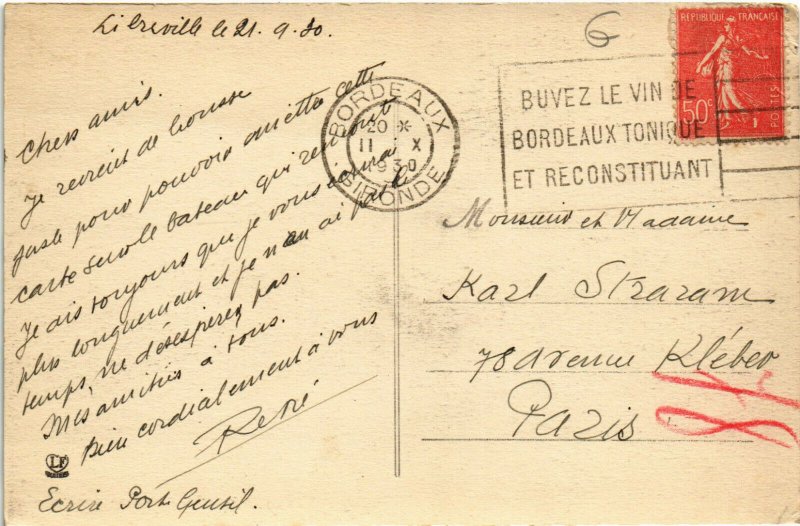 Libreville le 21.9.30.
Chers amis.
Je reviens de brousse
juste pour pouvoir mettre cette
carte sur le bateau qui
Je dis toujours que je vous écrirai
plus longuement et je n'en ai pas le
temps, ne désespérez pas.
Mes amitiés à tous.
Bien cordialement à vous
René
LF
Ecrire Port Gentil.
6
BORDEAUX
20 *
11 X
1930
GIRONDE
BUVEZ LE VIN DE
BORDEAUX TONIQUE
ET RECONSTITUANT
REPUBLIQUE FRANÇAISE
50c
POSTES
Monsieur et Madame
Karl Straram
78 avenue Kléber
Paris